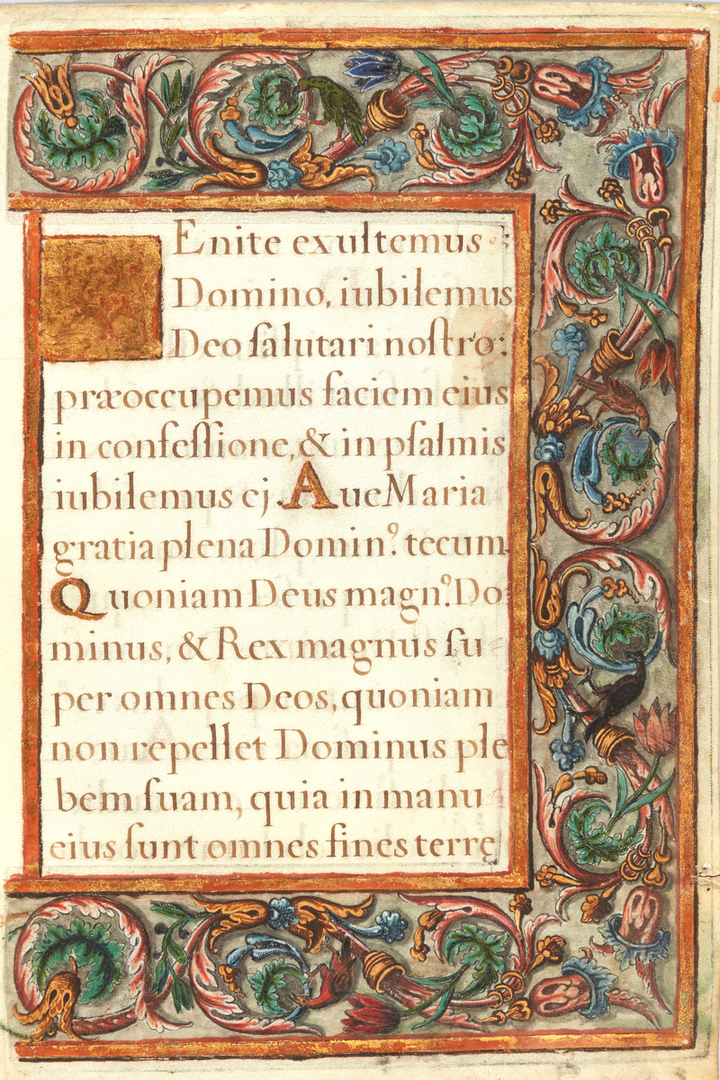 Enite exultemus
Domino, iubilemus
Deo ſalutari noſtro:
præoccupemus faciem eius
in confeſſione, & in pſalmis
iubilemus ej. Aue Maria
gratia plena Dominꝰ. tecum
Quoniam Deus magnꝰ. Do
minus, & Rex magnus ſu
per omnes Deos, quoniam
non repellet Dominus ple
bem ſuam, quia in manu
eius ſunt omnes fines terrę